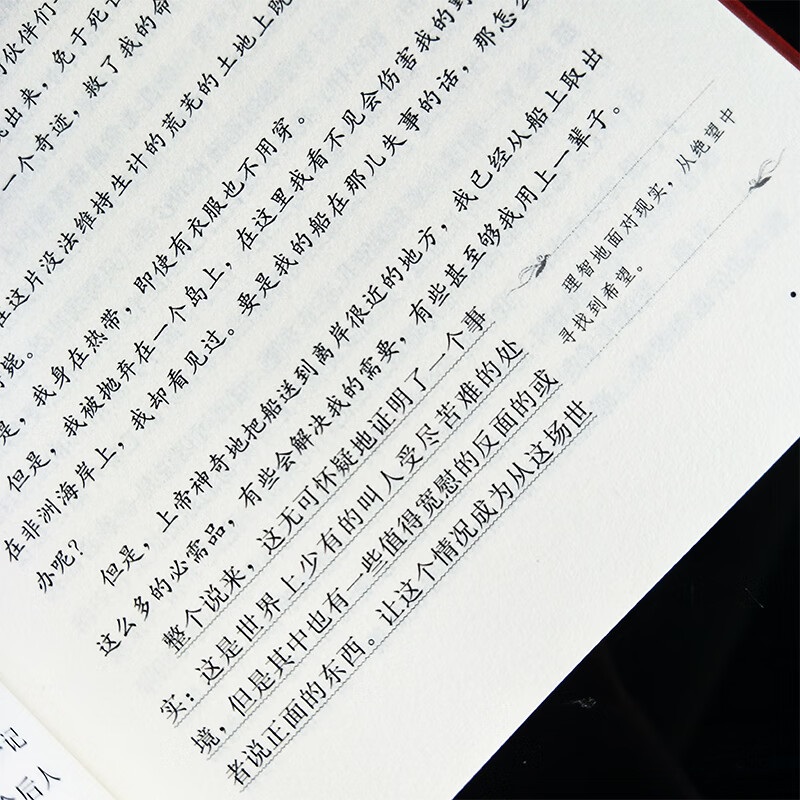 伙伴们
出来，免于死
一个奇迹，救了我的命
在这片没法维持生计的荒芜的土地上
能。
是，我身在热带，即使有衣服也不用穿。
但是，我被抛弃在一个岛上，在这里我看不见会伤害我的野
在非洲海岸上，我却看见过。要是我的船在那儿失事的话，那怎么
办呢？
但是，上帝神奇地把船送到离岸很近的地方，我已经从船上取出
这么多的必需品，有些会解决我的需要，有些甚至够我用上一辈子。
整个说来，这无可怀疑地证明了一个事
实：这是世界上少有的叫人受尽苦难的处
境，但是其中也有一些值得宽慰的反面的或
者说正面的东西。让这个情况成为从这场世
理智地面对现实，从绝望中
寻找到希望。
记
后人